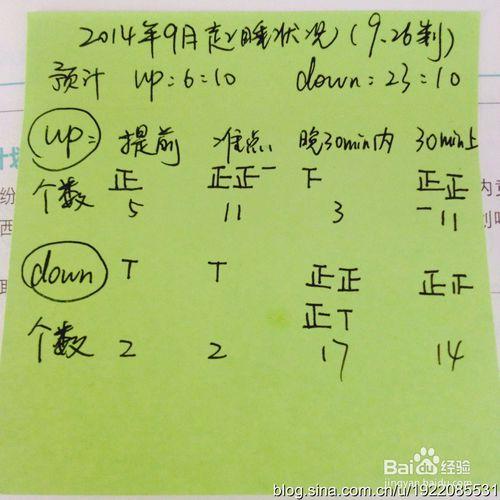 2014年9月起睡状况(9.26制)
预计 up:6:10 down:23:10
up: 提前 准点 晚30min内 30min上
个数 正 正正一 下 正正一
5 11 3 11
down T T 正正 正正
正T
个数 2 2 17 14
Bai du 经验
jingyan.baidu.com
blog.sina.com.cn/u/1922085531